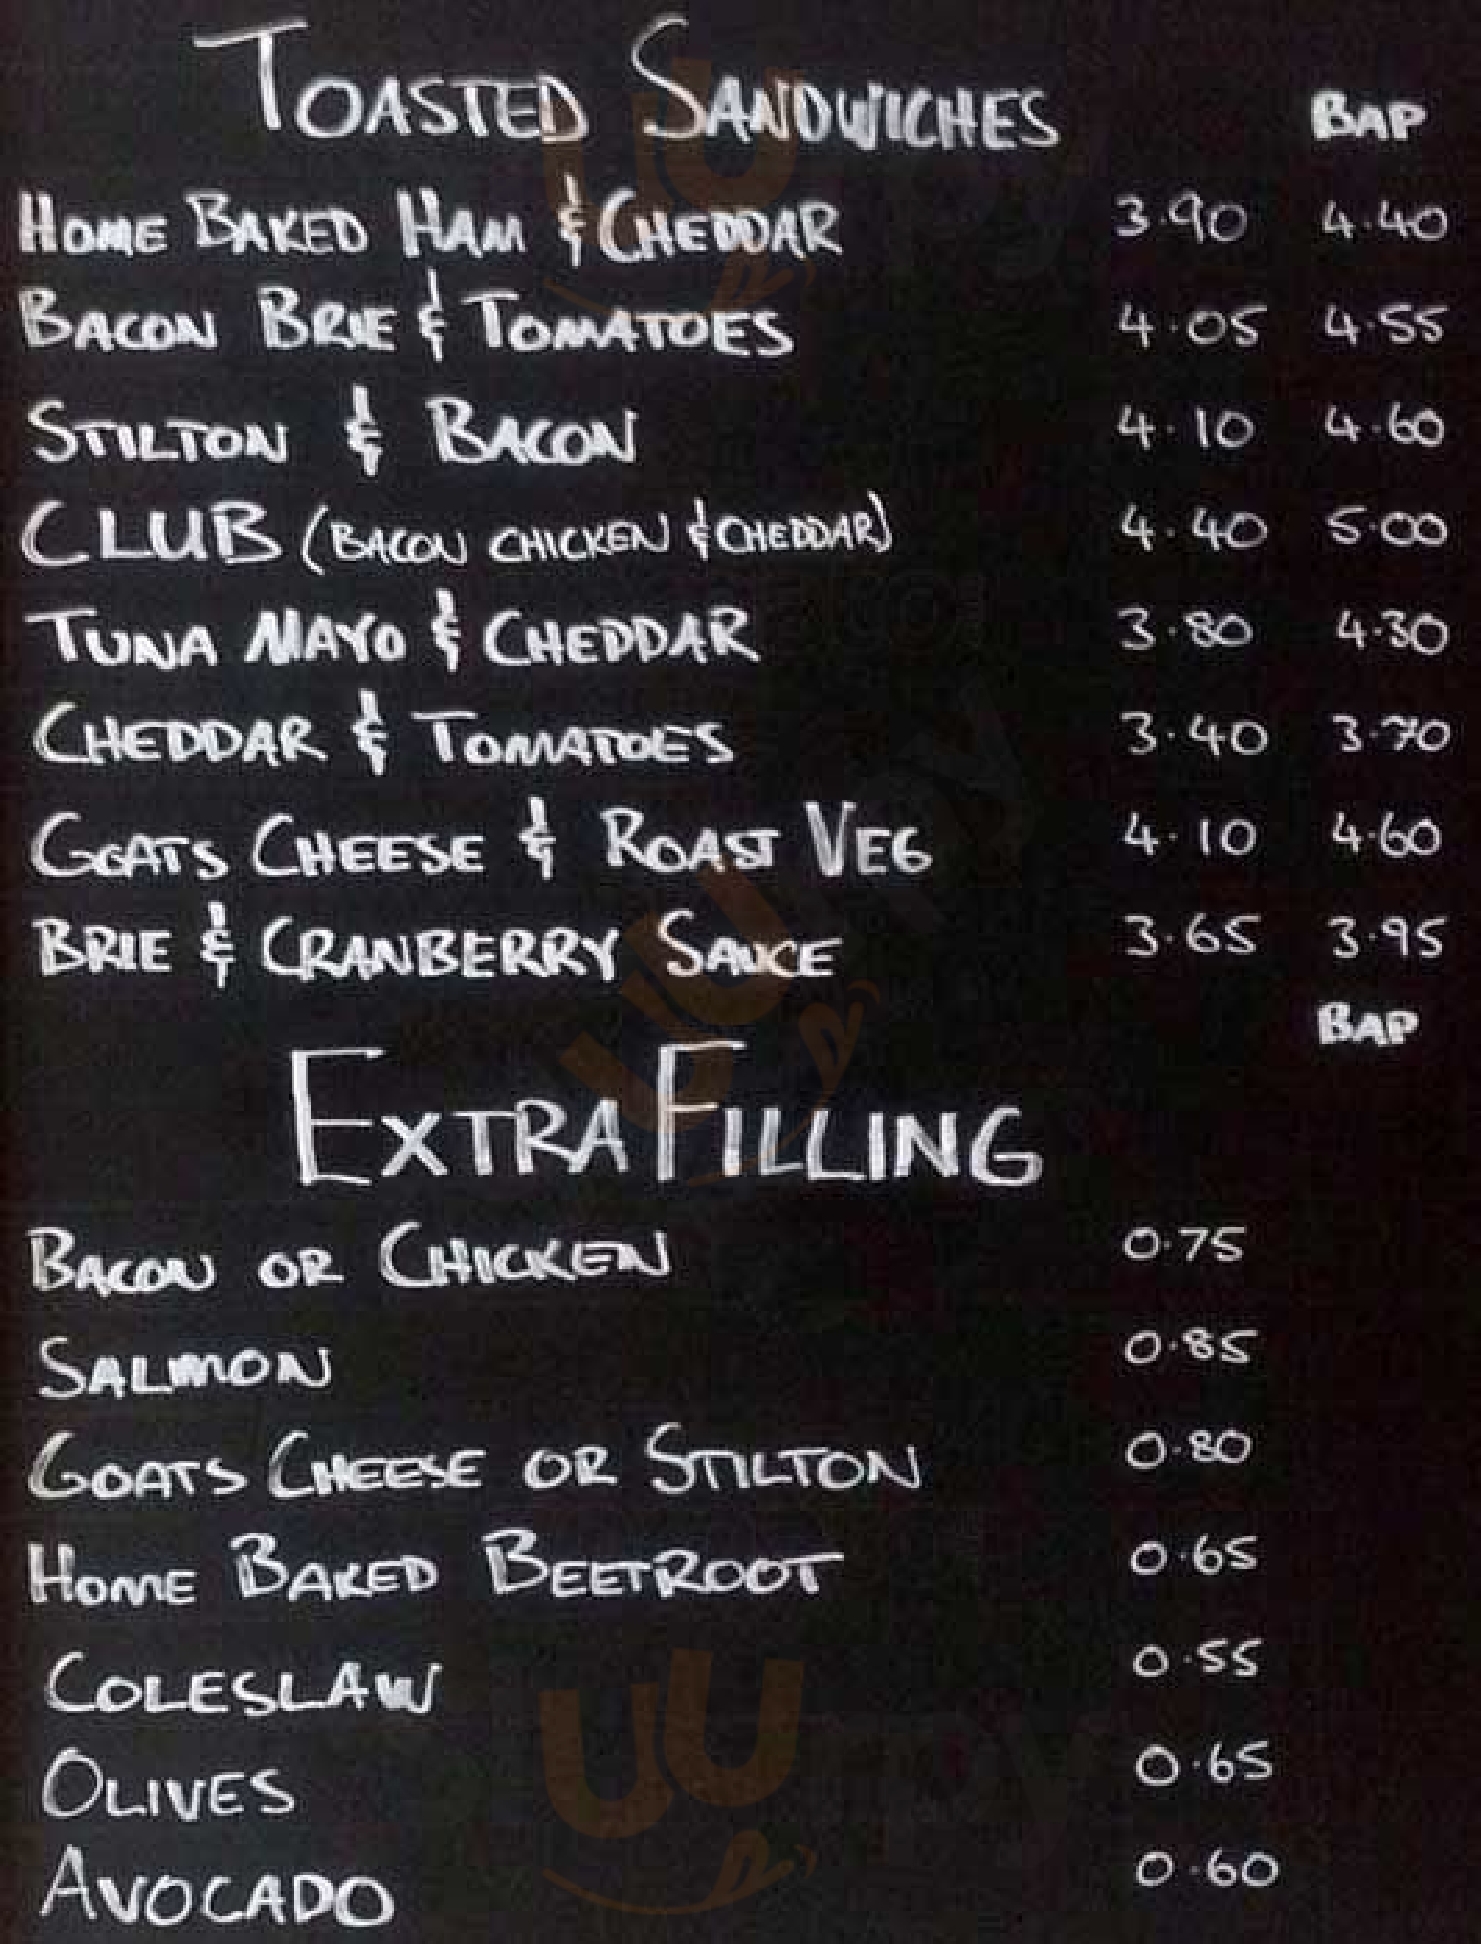 TOASTED SANDWICHES BAP
HOME BAKED HAM & CHEDDAR 3.90 4.40
BACON BRIE & TOMATOES 4.05 4.55
STILTON & BACON 4.10 4.60
CLUB (BACON CHICKEN & CHEDDAR) 4.40 5.00
TUNA MAYO & CHEDDAR 3.80 4.30
CHEDDAR & TOMATOES 3.40 3.70
GOATS CHEESE & ROAST VEG 4.10 4.60
BRIE & CRANBERRY SAUCE 3.65 3.95
BAP
EXTRA FILLING
BACON OR CHICKEN 0.75
SALMON 0.85
GOATS CHEESE OR STILTON 0.80
HOME BAKED BEETROOT 0.65
COLESLAW 0.55
OLIVES 0.65
AVOCADO 0.60